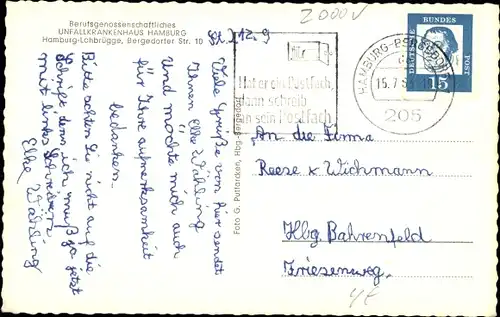 Berufsgenossenschaftliches
UNFALLKRANKENHAUS HAMBURG
Hamburg-Lohbrügge, Bergedorfer Str. 10
2000V
Viele Grüße von hier sendet
Ihnen Elke Wähling
Und möchte mich auch
für Ihre aufmerksamkeit
bedanken.
Bitte sehen Sie nicht auf die
Schrift denn ich muß ja jetzt
mit links schreiben
Elke Wähling
Foto G. Puttarcken, Hbg.-Bergedorf
Hat er ein Postfach,
dann schreib
an sein Postfach
HAMBURG-BERGEDORF
15.7.
205
DEUTSCHE
BUNDES
POST
15
An die Firma
Reese & Wichmann
Hbg Bahrenfeld
Friesenweg,